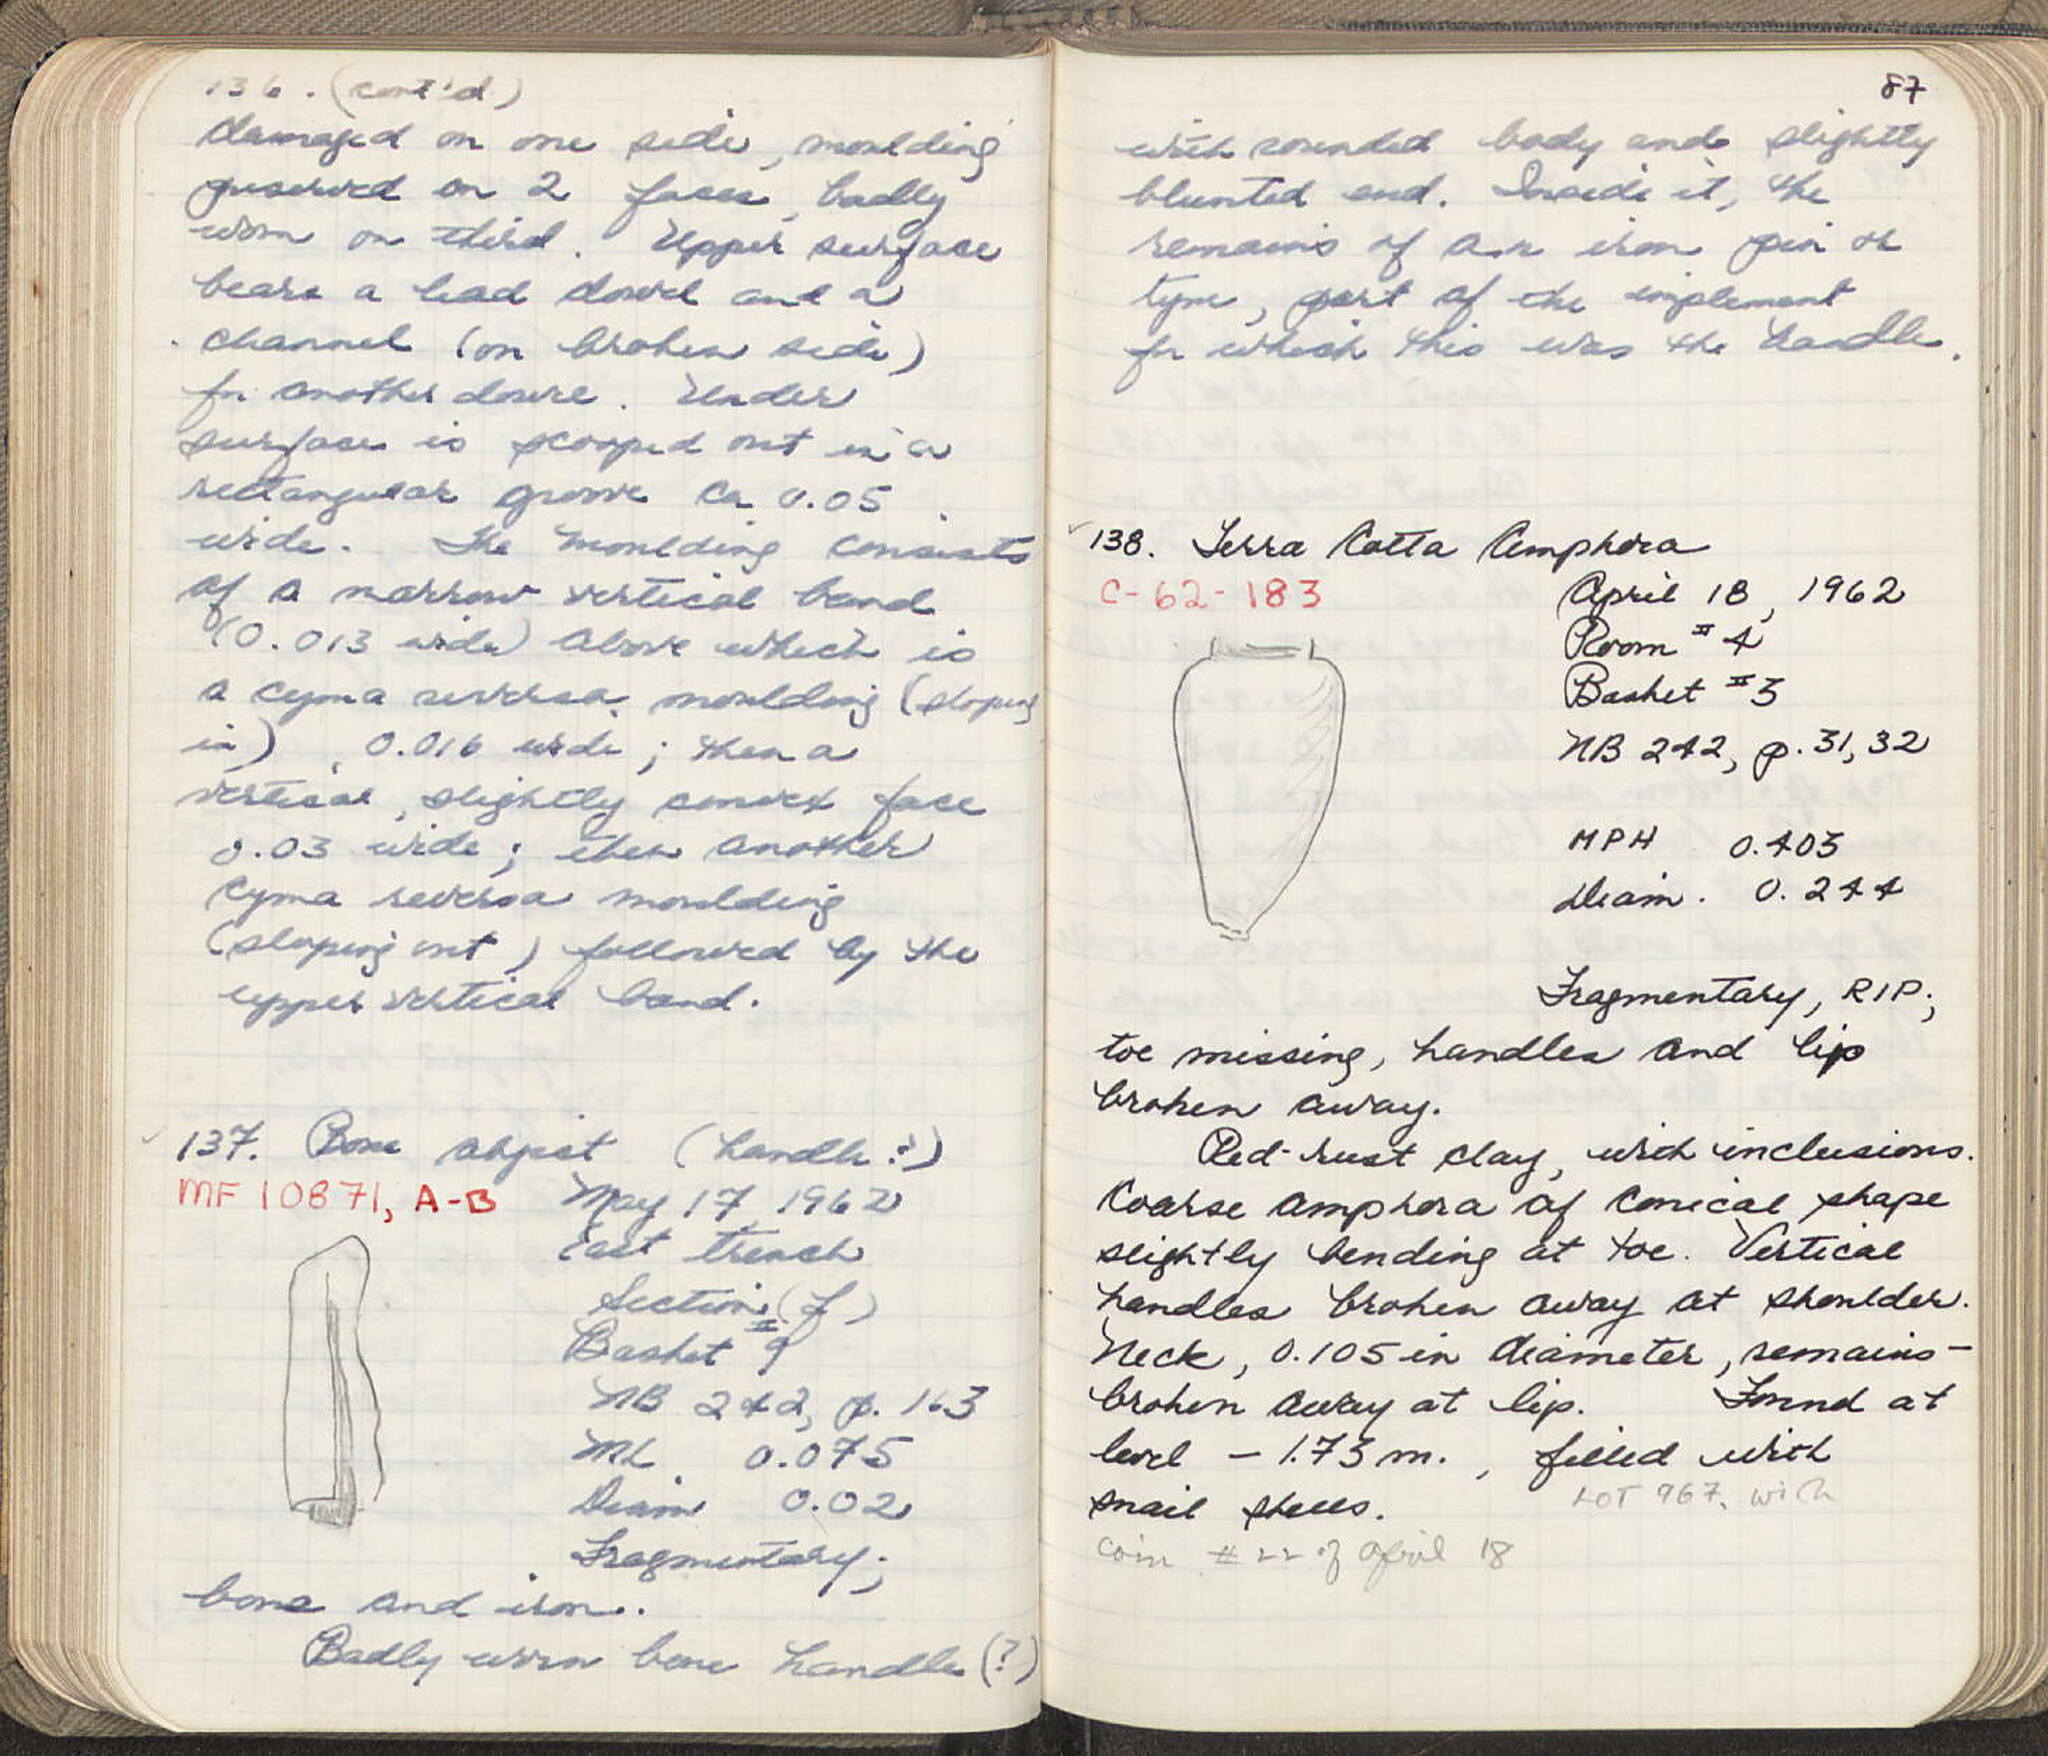 136. (cont'd)
damaged on one side, moulding
preserved on 2 faces, badly
worn on third. Upper surface
bears a lead dowel and a
channel (on broken side)
for another dowel. Under
surface is scooped out in a
rectangular groove ca 0.05
wide. The moulding consists
of a narrow vertical band
(0.013 wide) above which is
a cyma reversa moulding (sloping
in), 0.016 wide; then a
vertical, slightly convex face
0.03 wide; then another
cyma reversa moulding
(sloping out) followed by the
upper vertical band.
137. Bone object (handle?)
MF 10871, A-B
May 17 1962
East trench
Section (f)
Basket #9
NB 242, p. 163
ML 0.075
Diam 0.02
Fragmentary;
bone and iron.
Badly worn bone handle (?)
87
with rounded body and slightly
blunted end. Inside it, the
remains of an iron pin or
tyne, part of the implement
for which this was the handle.
138. Terra Cotta Amphora
C-62-183
April 18, 1962
Room #4
Basket #3
NB 242, p. 31, 32
MPH 0.403
Diam. 0.244
Fragmentary, RIP;
toe missing, handles and lip
broken away.
Red-rust clay, with inclusions.
Coarse amphora of conical shape
slightly bending at toe. Vertical
handles broken away at shoulder.
Neck, 0.105 in diameter, remains -
broken away at lip. Found at
level - 1.73 m., filled with
snail shells. LOT 967, with
coin #22 of April 18